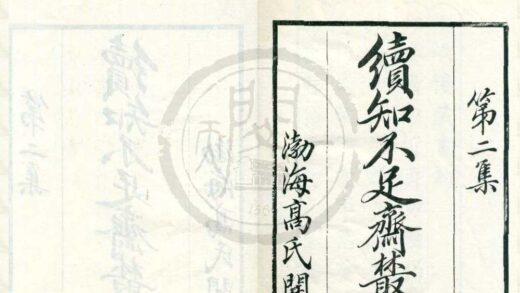 第二集
續知不足齋叢
渤海高氏開